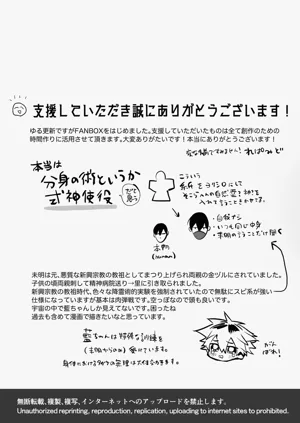 支援していただき誠にありがとうございます！
ゆる更新ですがFANBOXをはじめました。支援していただいたものは全て創作のための
時間作りに活用させて頂きます。大変ありがたいです！本当にありがとうございます！
本当は
分身の術というか
式神使役
だと思う
こういう
本体
(human)
・自我ナシ
・いつも同じ中身
・未明のゆうことだけ聞く
未明は元、悪質な新興宗教の教祖としてまつり上げられ両親の金ヅルにされていました。
子供の頃両親刺して精神病院送り→里に引き取られました。
新興宗教の教祖時代、色々な降霊術的実験を強制されていたので無駄にスピ系が強い
仕様になっていますが基本は肉弾戦です。空っぽなので頭も良いです。
宇宙の中で藍ちゃんしか見えてないです。困ったね
過去も含めて漫画で描きたいなと思っています。
藍ちゃんは特殊な訓練を
がんばれ!
無断転載、複製、複写、インターネットへのアップロードを禁止します。
Unauthorized reprinting, reproduction, replication, uploading to internet sites prohibited.